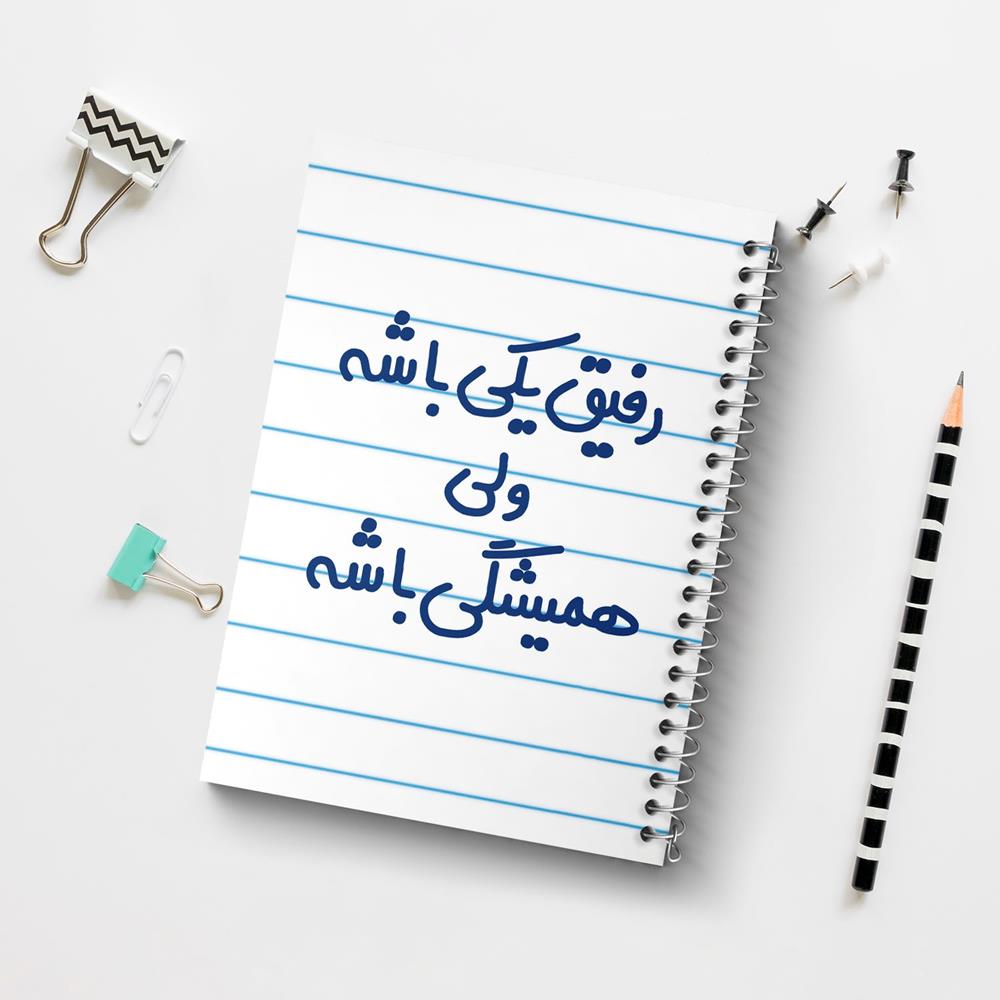 رفیق یکی باشه
ولی
همیشگی باشه